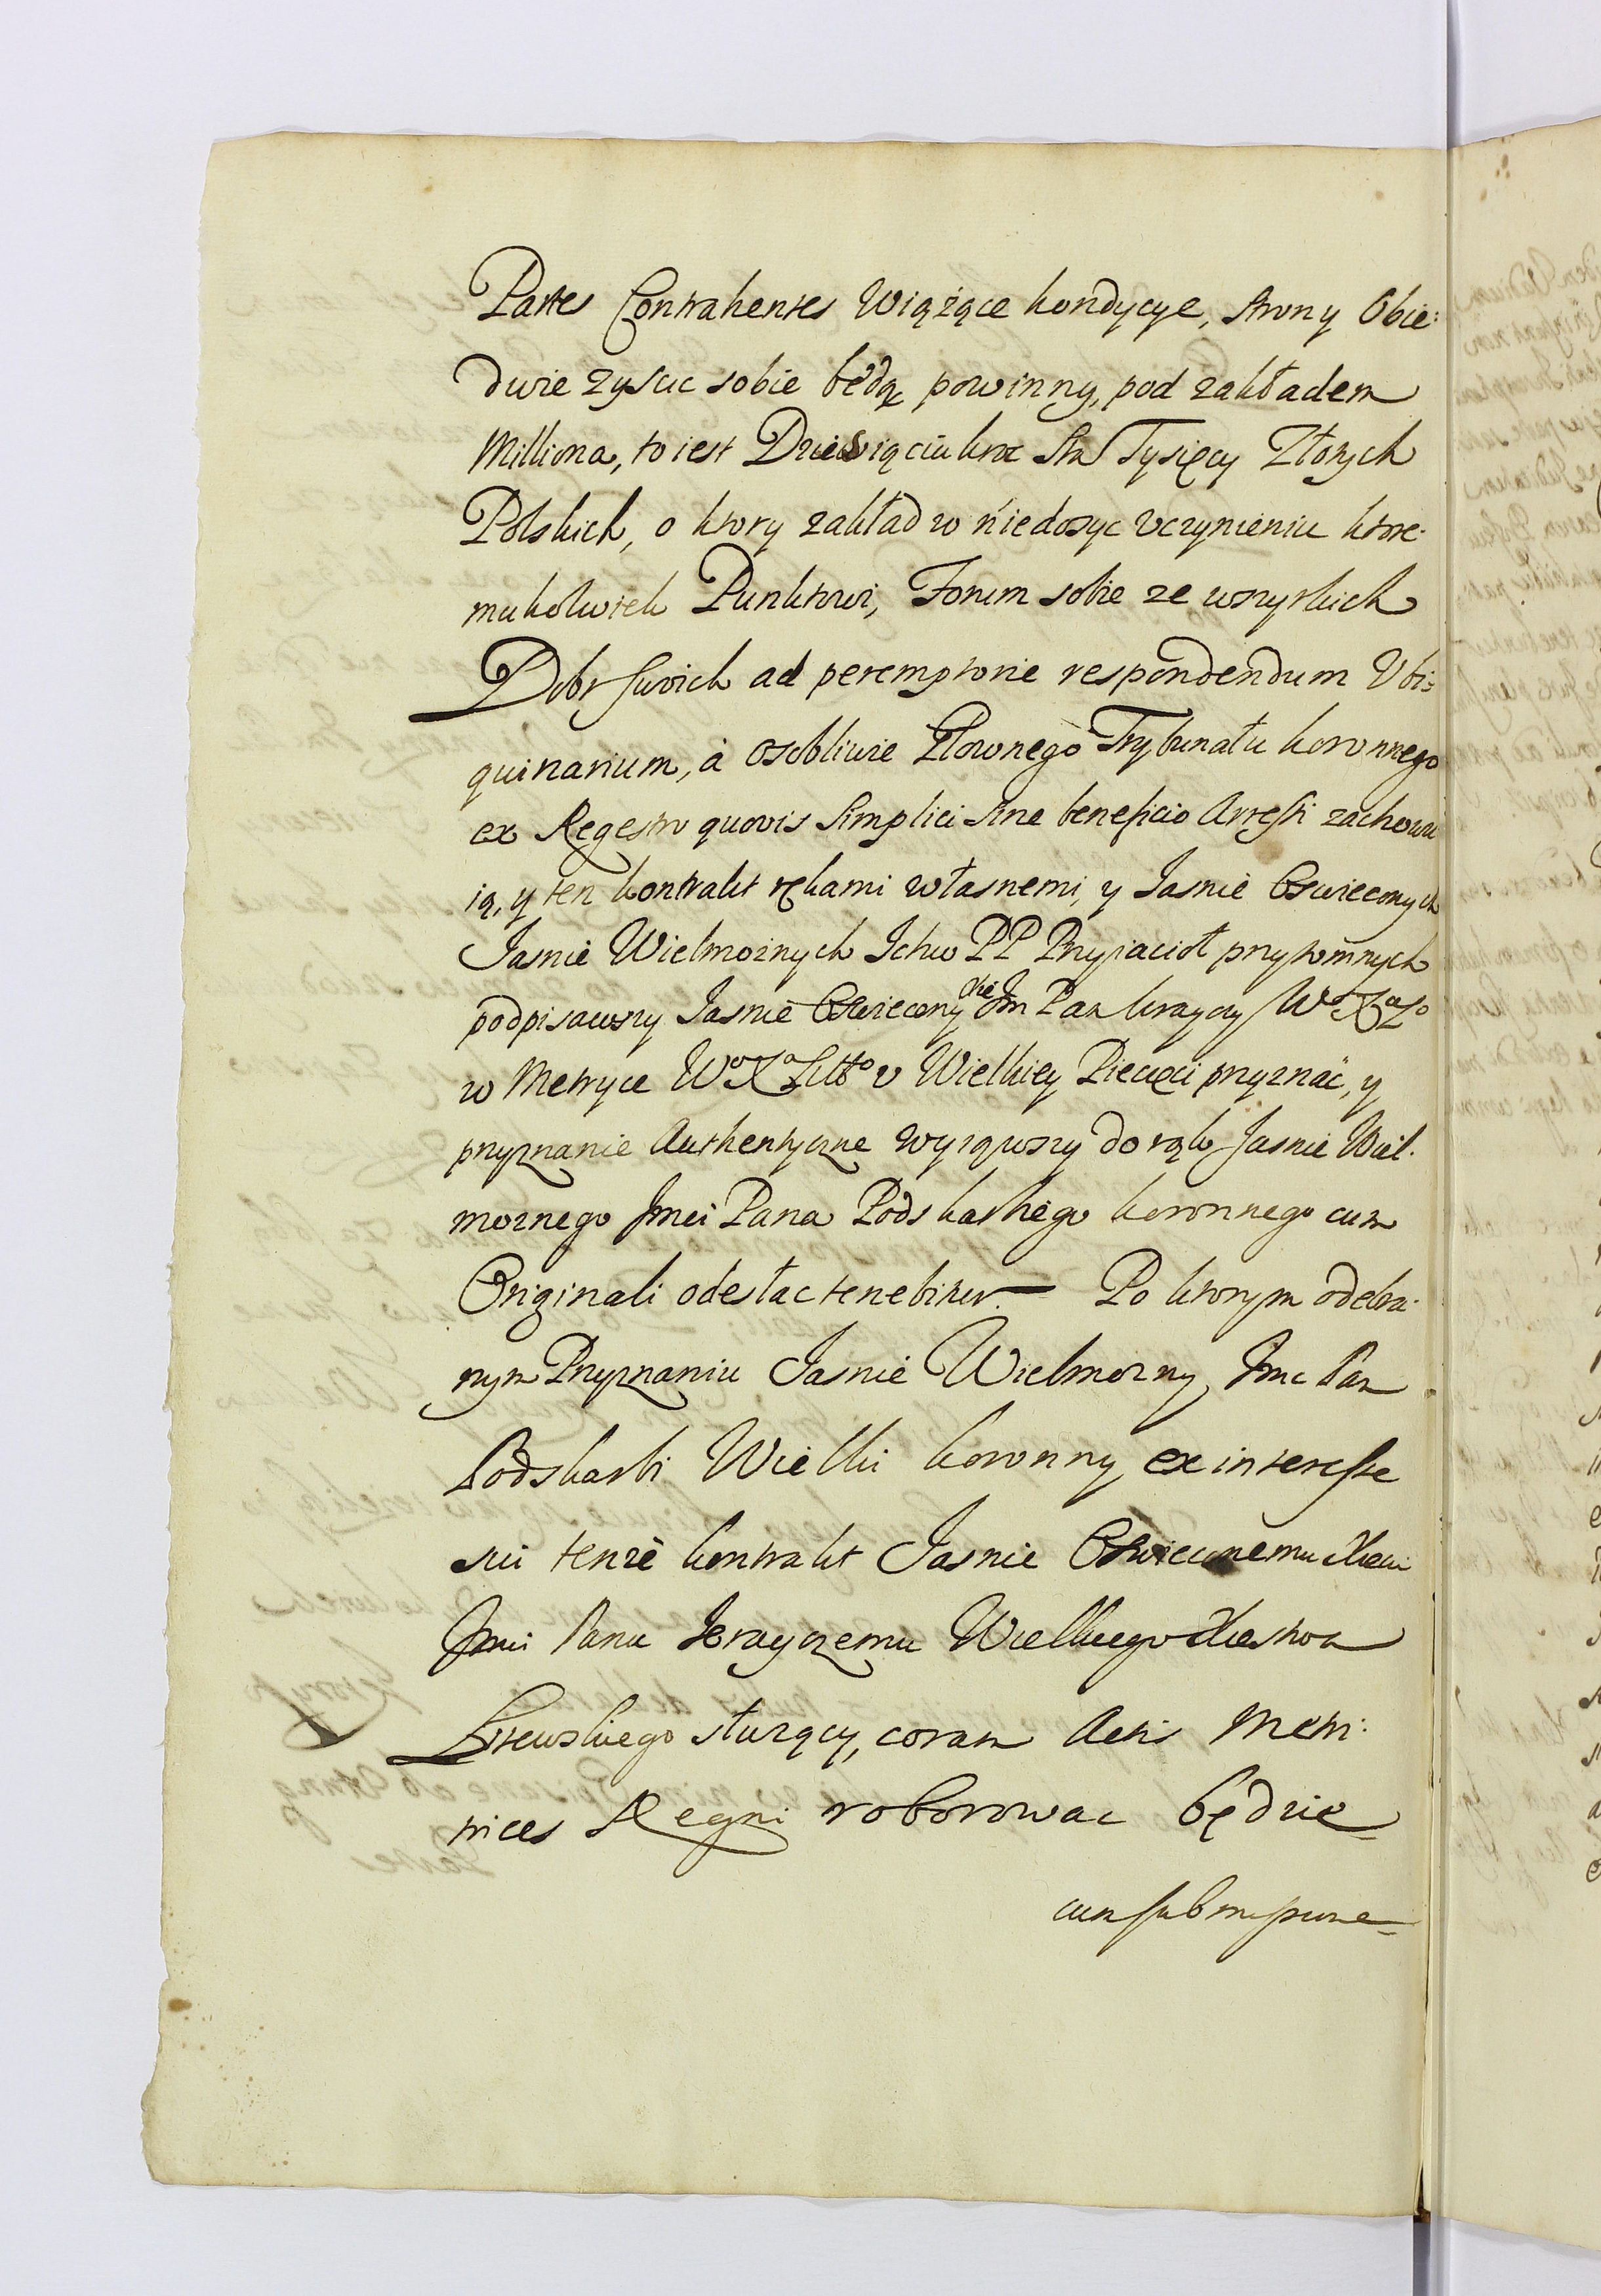 Partes Contrahentes Wiążące kondycye, strony Obie:
dwie zyscic sobie będą powinny, pod zakładem
Milliona, to iest Dziewiąciukroc Sta Tysięcy Złotych
Polskich, o ktory zakład w niedosyc vczynieniu ktore.
mukolwiek Punktowi, Forum sobie ze wszytkich
Dobr swoich ad peremptorie respondendum Vbi:
quinarium, à osobliwie Głownego Trybunału koronnego
ex Regestro quovis simplici sine beneficio Arresti zachowu
ią, y ten kontrakt rękami własnemi, y Jasnie Oswieconych
Jasnie Wielmoznych Ichw PP Przyiacioł przytomnych
podpisawszy Jasnie Oswiecony Xże Jm Pan kraycy Wo Xa Lo
w Metryce Wo Xa Litto v Wielkiey Pieczęci przyznać, y
przyznanie Authentyczne wyiąwszy do rąk Jasnie Wiel.
moznego Jmci Pana Podskarbiego koronnego cum
Originali odesłac tenebitur. — Po ktorym odebra.
nym Przyznaniu Jasnie Wielmozny Jmc Pan
Podskarbi Wielki koronny ex interesse
sui tenze kontrakt Jasnie Oswieconemu Xieciu
Jmci Panu krayczemu Wielkiego Xiestwa
Litewskiego słuzący, coram Actis Metri:
trices Regni roborowac będzie
cum submissione